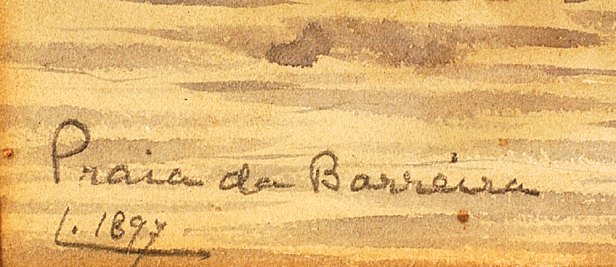 Praia da Barreira
L. 1897